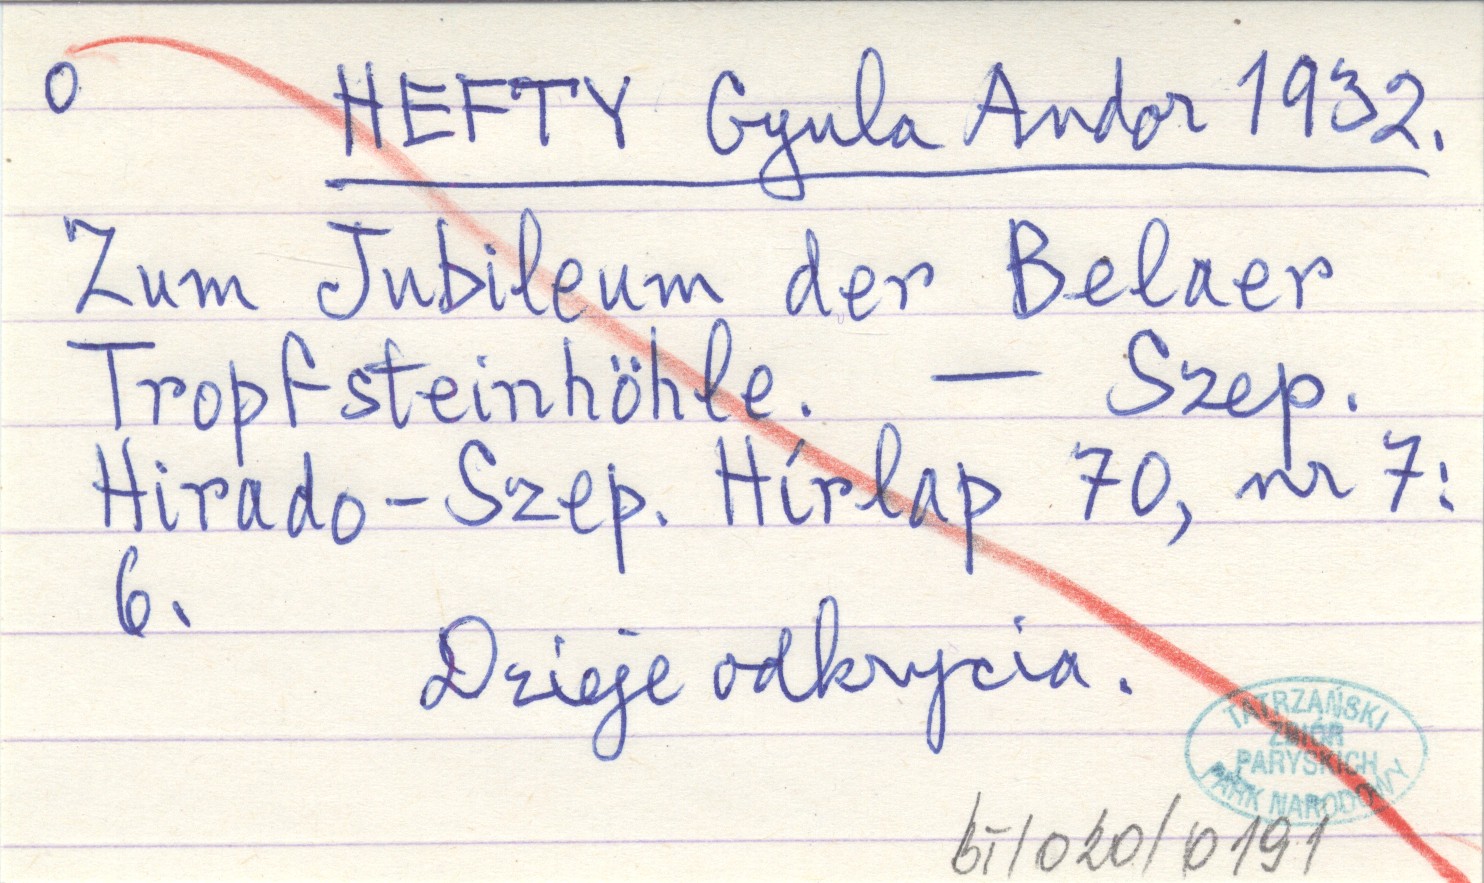 O HEFTY Gyula Andor 1932.
Zum Jubileum der Belaer
Tropfsteinhöhle. — Szep.
Hirado-Szep. Hírlap 70, nr 7:
6.
Dzieje odkrycia.
TATRZAŃSKI
ZBIÓR
PARYSKICH
PARK NARODOWY
bī/020/0191